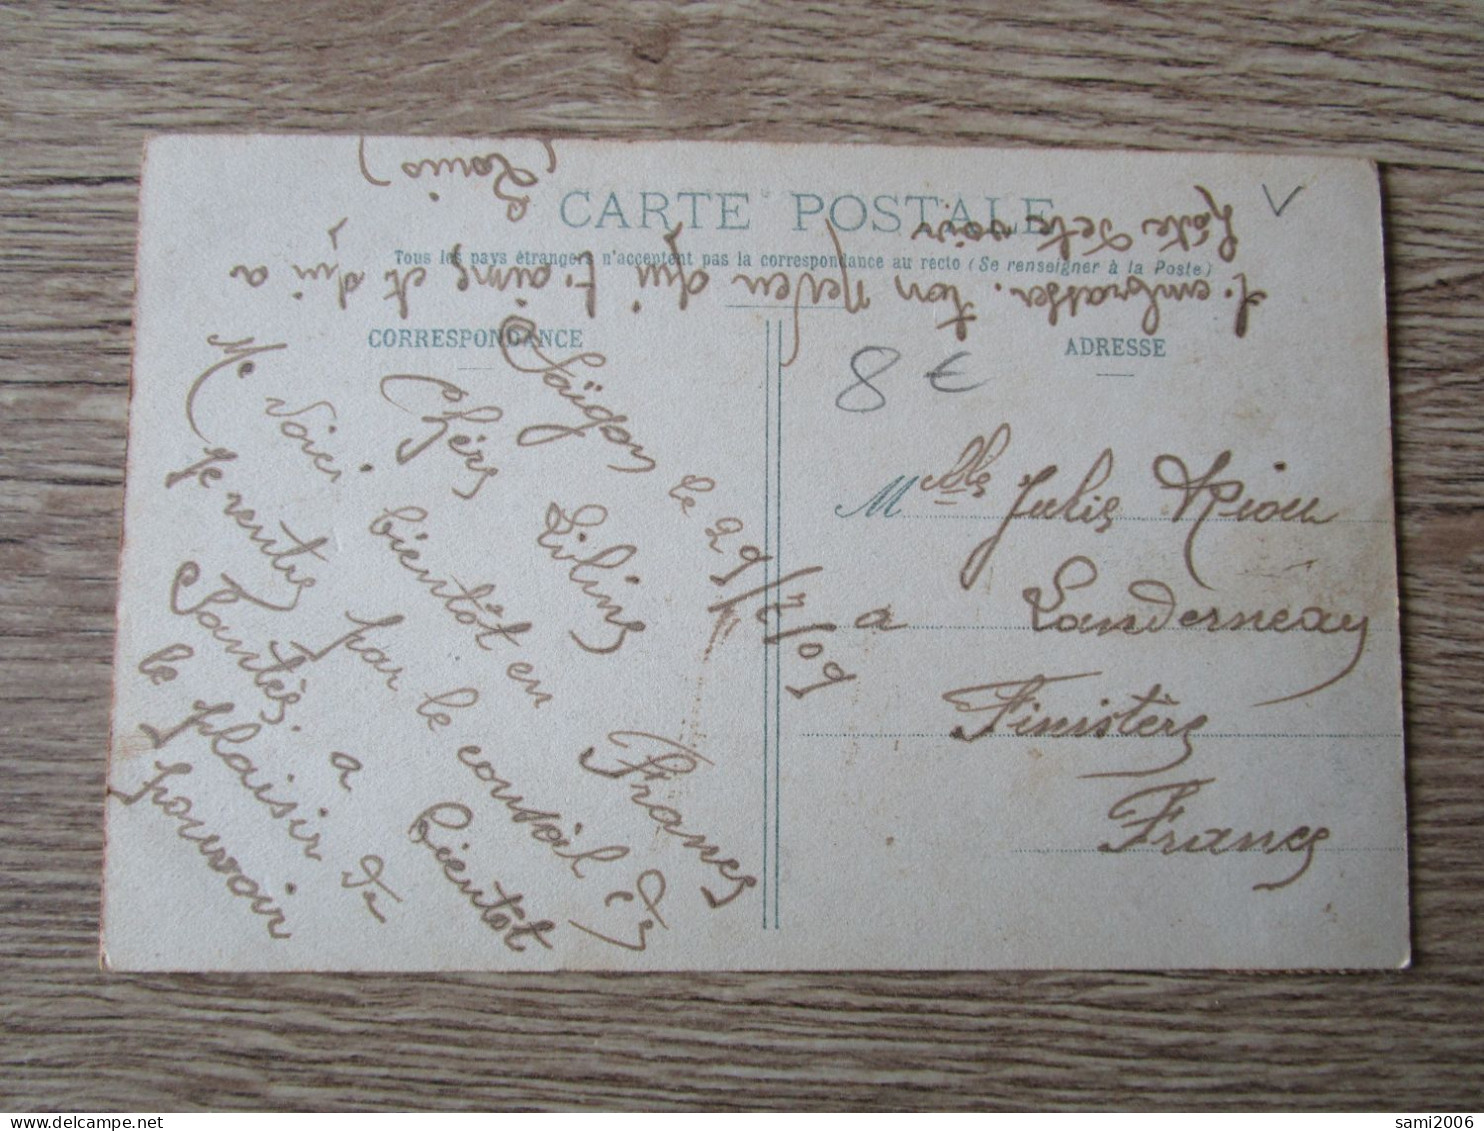 CARTE POSTALE
Tous les pays étrangers n'acceptent pas la correspondance au recto (Se renseigner à la Poste)
CORRESPONDANCE
ADRESSE
8 €
V
Saïgon le 29/7/09
Chère Liline
Me Voici bientôt en France
Je rentre par le convoil de
Santès. a bientôt
le plaisir de
pouvoir
t'embrasser. ton neveu qui t'aime et qui a
hâte de te voir
(Louis)
Mlle Julie Riou
a Landerneau
Finistère
France
sami2006